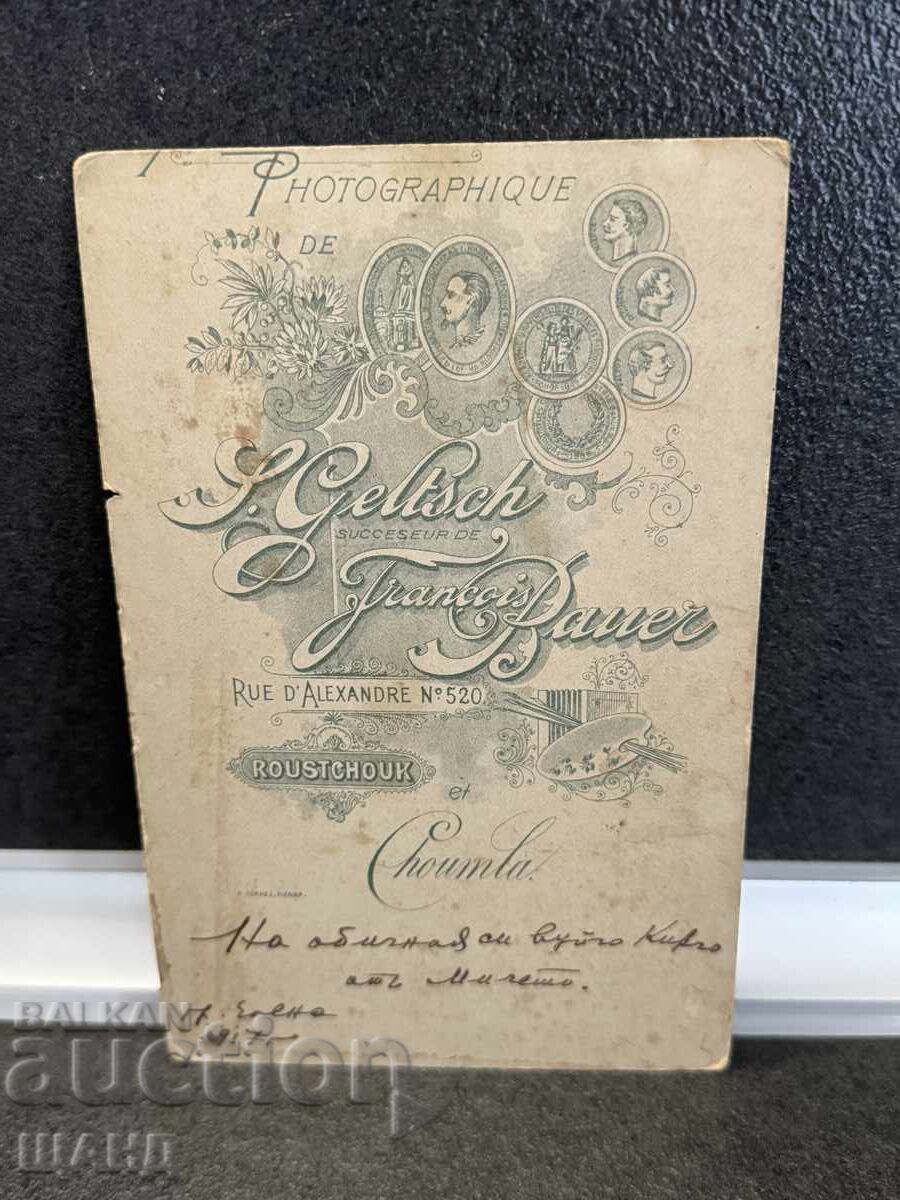 PHOTOGRAPHIQUE
DE
S. Geltsch
SUCCESEUR DE
François Bauer
RUE D'ALEXANDRE Nº 520
ROUSTCHOUK
et
Choumla.
На обичная си вуйчо Кирчо
отъ Мичето.
Елена
BALKAN
auction
ШАНД